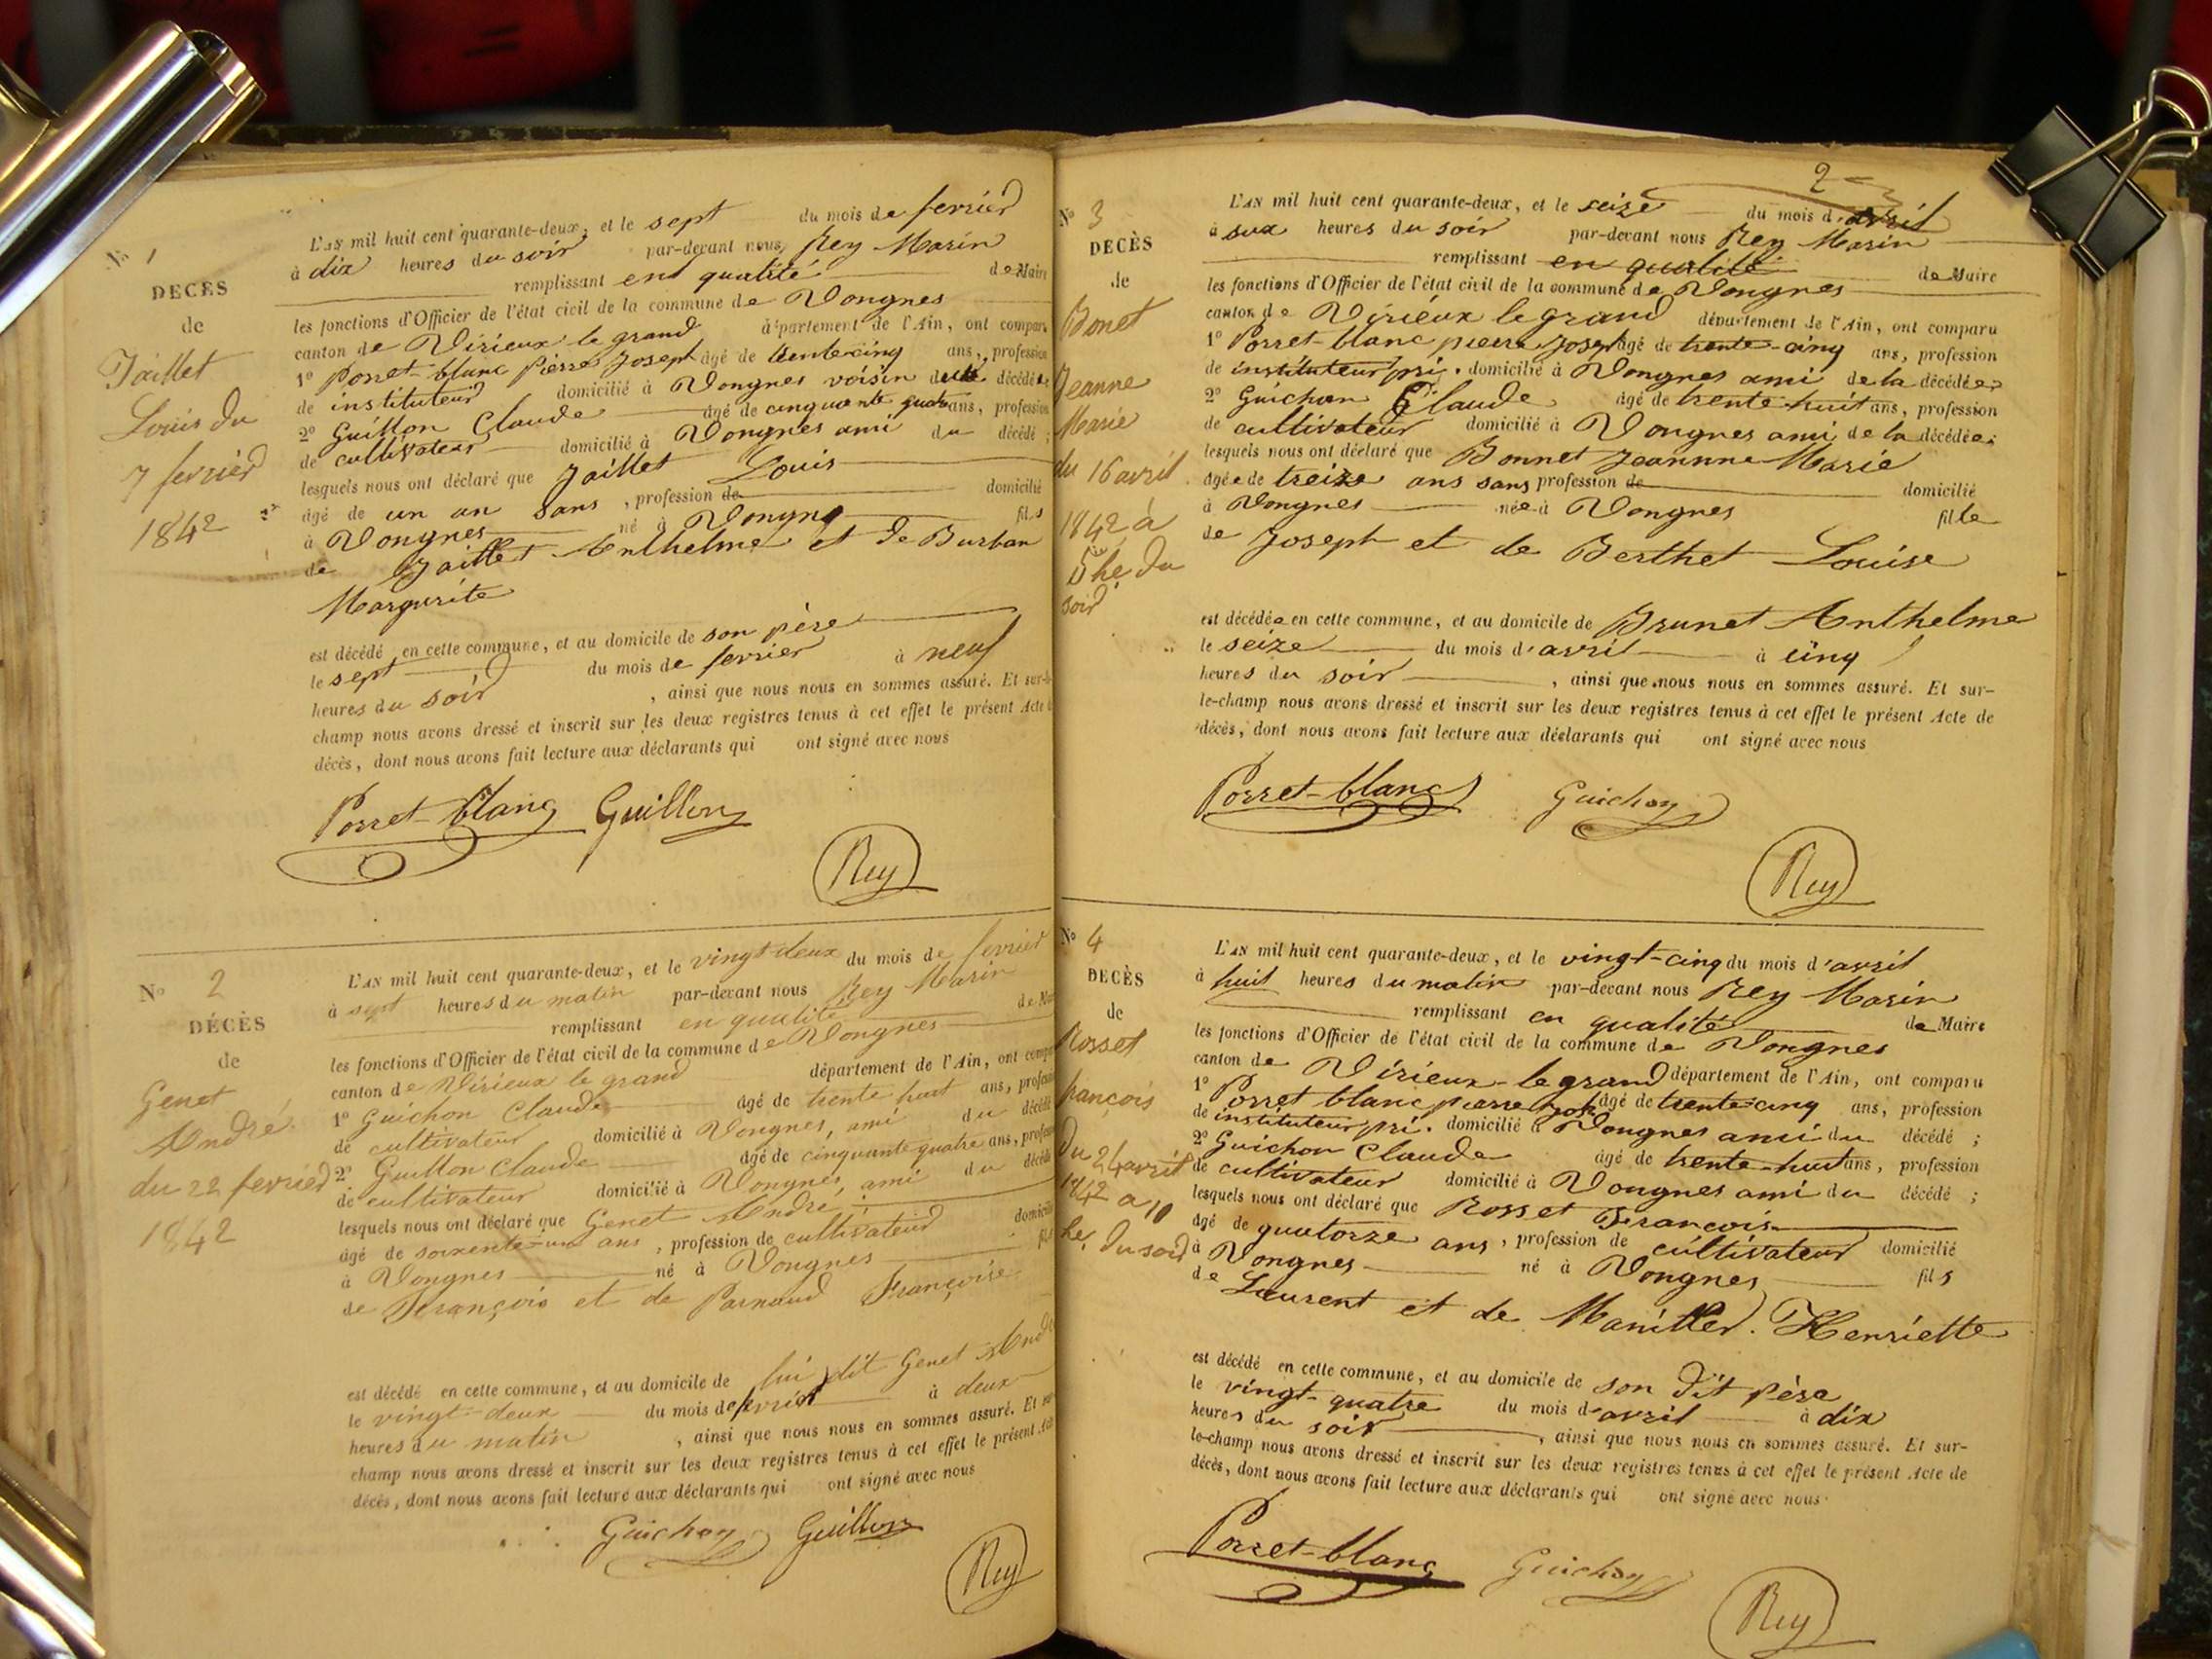 N° 1
DÉCÈS
de
Jaillet
Louis du
7 fevrier
1842
L'AN mil huit cent quarante-deux, et le sept du mois de fevrier
à dix heures du soir par-devant nous Rey Marin
remplissant en qualité de Maire
les fonctions d'Officier de l'état civil de la commune de Vongnes
canton de Virieux le grand département de l'Ain, ont compar
1° Porret-blanc Pierre Joseph âgé de trente cinq ans, profession
de instituteur domicilié à Vongnes voisin du décédé
2° Guillon Claude âgé de cinquante quatre ans, profession
de cultivateur domicilié à Vongnes ami du décédé ;
lesquels nous ont déclaré que Jaillet Louis
âgé de un an sans , profession de domicilié
à Vongnes né à Vongne fils
de Jaillet Anthelme et de Burban
Margurite
est décédé en cette commune, et au domicile de son père
le sept du mois de fevrier à neuf
heures du soir , ainsi que nous nous en sommes assuré. Et sur-le-
champ nous avons dressé et inscrit sur les deux registres tenus à cet effet le présent Acte
décès, dont nous avons fait lecture aux déclarants qui ont signé avec nous
Porret-blanc Guillon
Rey
N° 2
DÉCÈS
de
Genet
André
du 22 fevrier
1842
L'AN mil huit cent quarante-deux, et le vingt-deux du mois de fevrier
à sept heures du matin par-devant nous Rey Marin
remplissant en qualité de
les fonctions d'Officier de l'état civil de la commune de Vongnes
canton de Virieux le grand département de l'Ain, ont
1° Guichon Claude âgé de trente huit ans,
de cultivateur domicilié à Vongnes, ami du décédé
2° Guillon Claude âgé de cinquante quatre ans,
de cultivateur domicilié à Vongnes, ami du décédé
lesquels nous ont déclaré que Genet André
âgé de soixente-un ans , profession de cultivateur domicilié
à Vongnes né à Vongnes fils
de François et de Parnaud Françoise
est décédé en cette commune, et au domicile de lui dit Genet André
le vingt-deux du mois de fevrier à deux
heures du matin , ainsi que nous nous en sommes assuré. Et
champ nous avons dressé et inscrit sur les deux registres tenus à cet effet le présent
décès, dont nous avons fait lecture aux déclarants qui ont signé avec nous
Guichon Guillon
Rey
2
N° 3
DÉCÈS
de
Bonet
Jeanne
Marie
du 16 avril
1842 à
5 he du
soir
L'AN mil huit cent quarante-deux, et le seize du mois d'avril
à six heures du soir par-devant nous Rey Marin
remplissant en qualité de Maire
les fonctions d'Officier de l'état civil de la commune de Vongnes
canton de Virieux le grand département de l'Ain, ont comparu
1° Porret-blanc pierre Joseph âgé de trente-cinq ans, profession
de instituteur pri. domicilié à Vongnes ami de la décédée
2° Guichon Claude âgé de trente-huit ans, profession
de cultivateur domicilié à Vongnes ami de la décédée
lesquels nous ont déclaré que Bonnet Jeannne Marie
âgée de treize ans sans profession de domicilié
à Vongnes née à Vongnes fille
de Joseph et de Berthet Louise
est décédée en cette commune, et au domicile de Brunet Anthelme
le seize du mois d'avril à cinq
heures du soir , ainsi que nous nous en sommes assuré. Et sur-
le-champ nous avons dressé et inscrit sur les deux registres tenus à cet effet le présent Acte de
décès, dont nous avons fait lecture aux déclarants qui ont signé avec nous
Porret-blanc Guichon
Rey
N° 4
DÉCÈS
de
Rosset
françois
du 24 avril
1842 à 10
he. du soir
L'AN mil huit cent quarante-deux, et le vingt-cinq du mois d'avril
à huit heures du matin par-devant nous Rey Marin
remplissant en qualité de Maire
les fonctions d'Officier de l'état civil de la commune de Vongnes
canton de Virieux-le grand département de l'Ain, ont comparu
1° Porret blanc pierre Joph âgé de trente cinq ans, profession
de instituteur pri. domicilié à Vongnes ami du décédé ;
2° Guichon Claude âgé de trente-huit ans, profession
de cultivateur domicilié à Vongnes ami du décédé ;
lesquels nous ont déclaré que Rosset François
âgé de quatorze ans , profession de cultivateur domicilié
à Vongnes né à Vongnes fils
de Laurent et de Henriette
est décédé en cette commune, et au domicile de son dit père
le vingt-quatre du mois d'avril à dix
heures du soir , ainsi que nous nous en sommes assuré. Et sur-
le-champ nous avons dressé et inscrit sur les deux registres tenus à cet effet le présent Acte de
décès, dont nous avons fait lecture aux déclarants qui ont signé avec nous
Porret-blanc Guichon
Rey